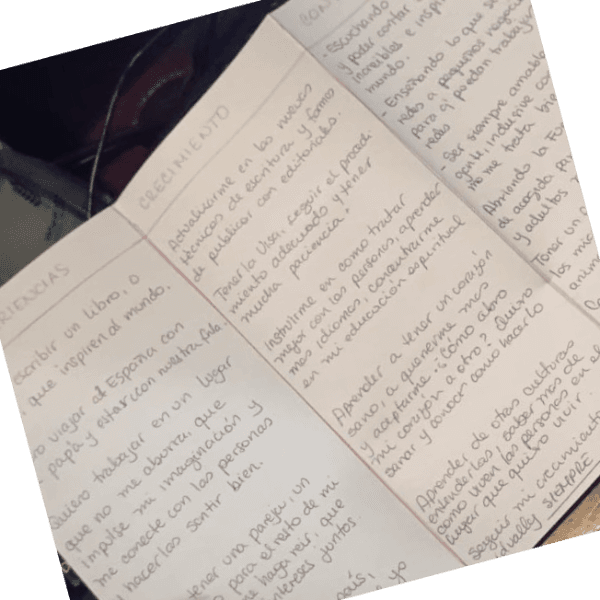 RIENCIAS
scribir un libro, o
que inspiren al mundo.
viajar a España con
papá y estar con nuestra fala.
Quiero trabajar en un lugar
que no me aburra, que
impulse mi imaginación y
me conecte con las personas
hacerlas sentir bien.
tener una pareja, un
para el resto de mi
me haga reir, que
intereses juntos.
país,
yo
CRECIMIENTO
Actualizarme en las nuevas
técnicas de escritura, y formas
de publicar con editoriales.
Tener la visa, seguir el procedi-
miento adecuado y tener
mucha paciencia.
Instruirme en como tratar
mejor con las personas, aprender
mas idiomas, concentrarme
en mi educación espiritual
Aprender a tener un corazón
sano, a quererme mas
y aceptarme. ¿Cómo abro
mi corazón a otro? Quiero
sanar y conocer como hacerlo
Aprender de otras culturas
entenderlas y saber mas de
como viven las personas en el
lugar que quiero vivir.
Seguir mi crecimiento
SIEMPRE
CON
- Escuchando
y poder contar
increibles e inspi
mundo.
- Enseñando lo que se
redes a pequeños negoci
para q' puedan trabajar
redes
Ser siempre amable
gente, inclusive con
no me trata bie
Abriendo la
de acogida para
y adultos
Tener un
los mie
anim